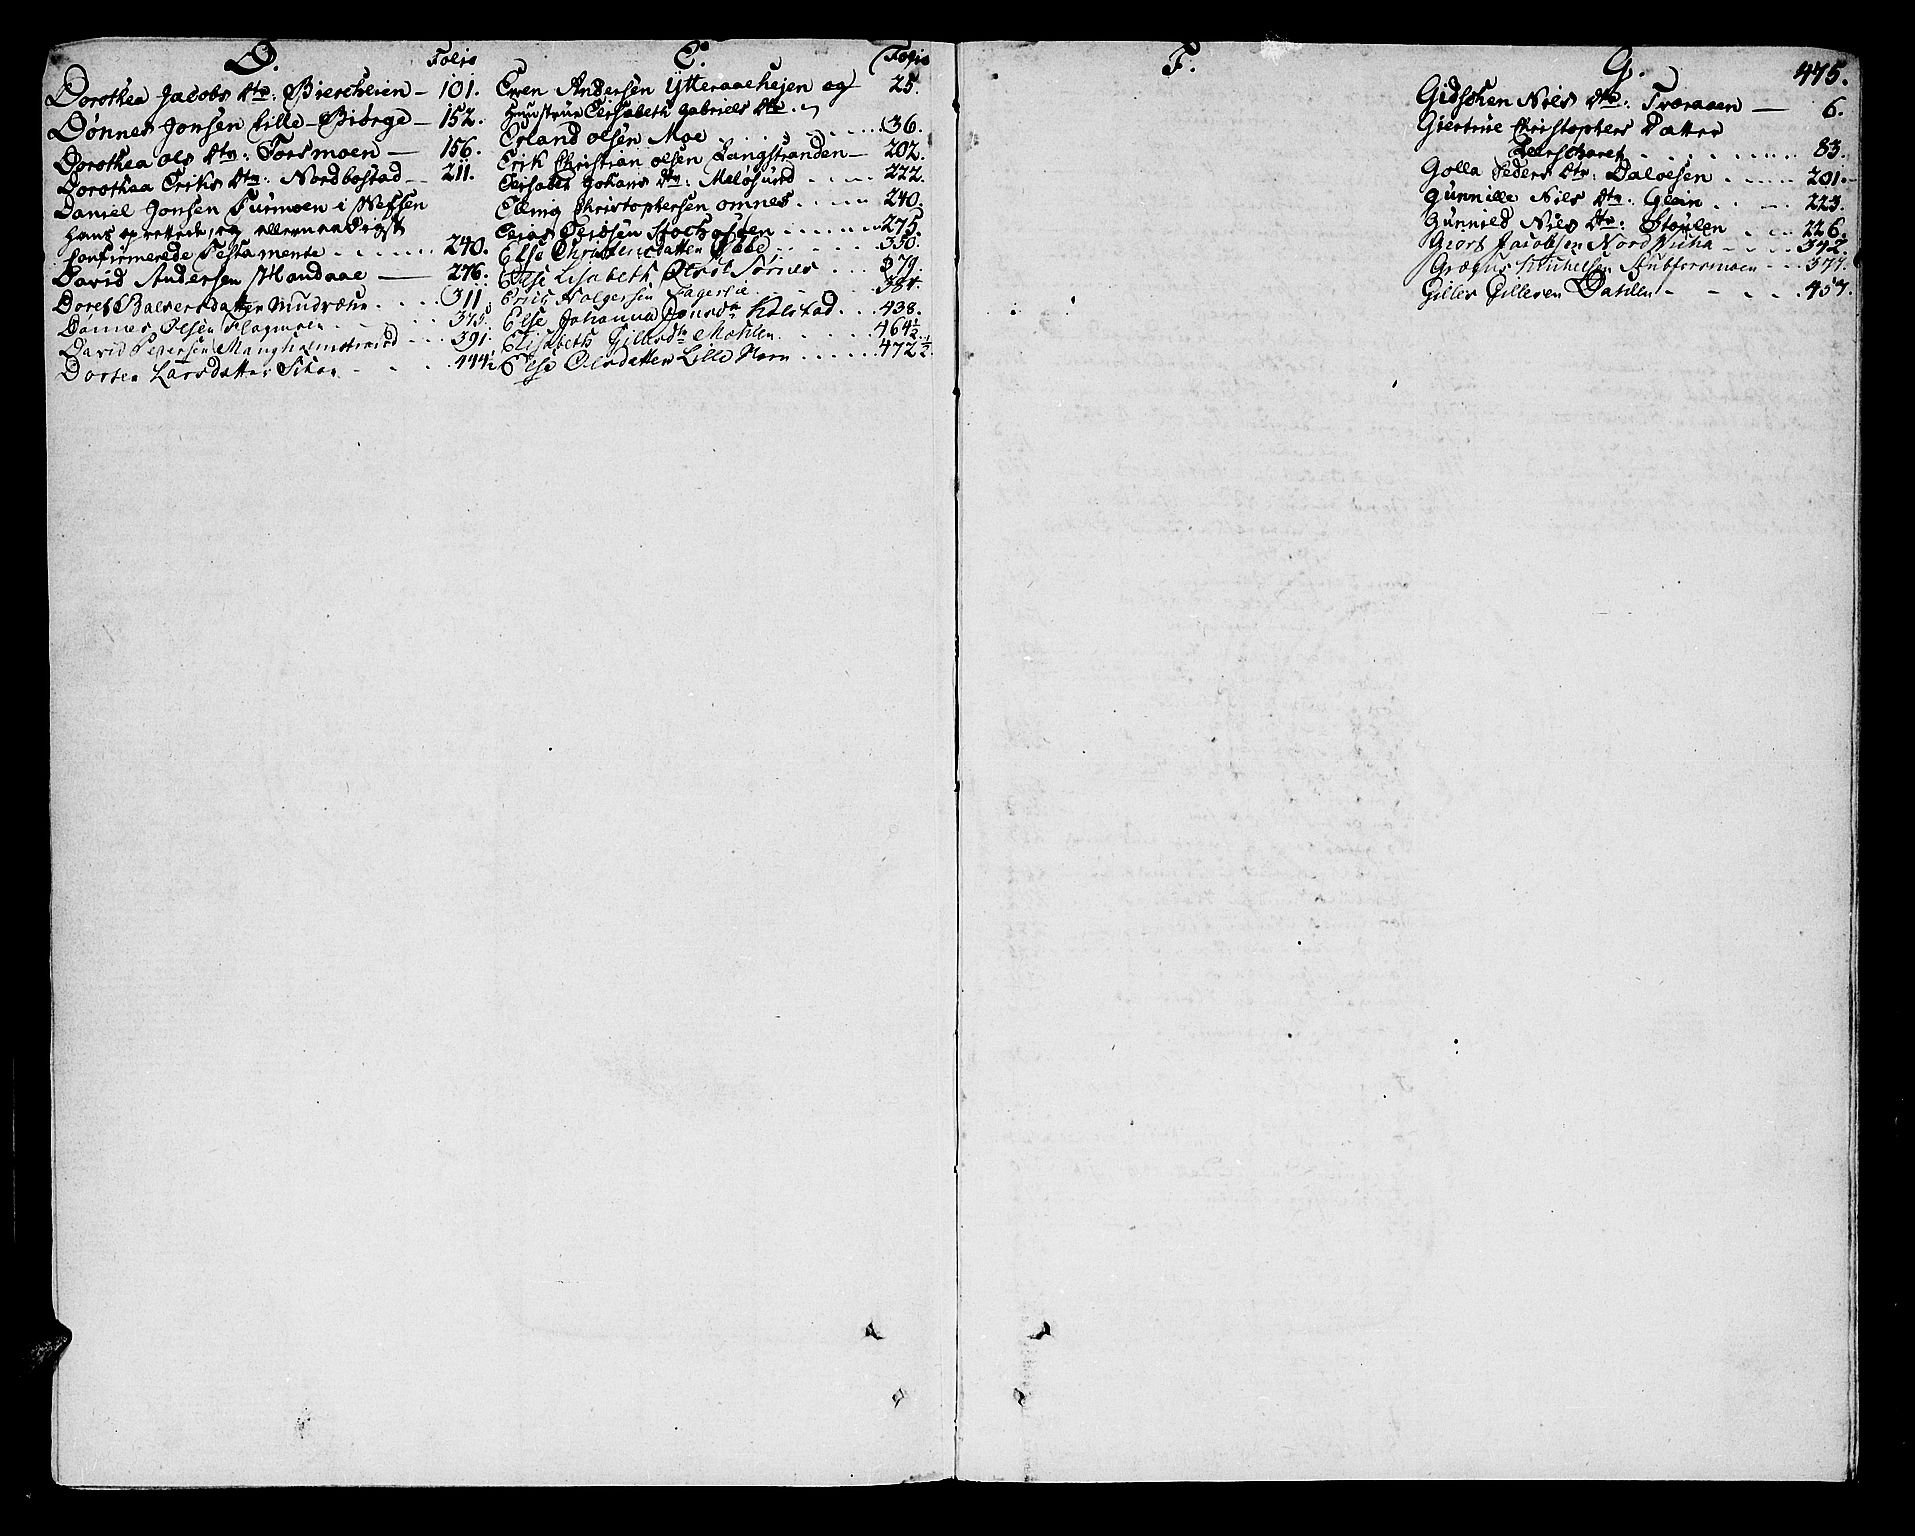 D. Folio
Dorothea Jacobs Dtr: Biercheien — 101.
Dønnes Jonsen Lille-Biørge — 152.
Dorothea Ols Dtr: Forsmoen — 156.
Dorothea Eriks Dtr: Nordbostad — 211.
Daniel Jonsen Furmoen i Nefsen
hans oprettede, og allernaadigst
Confirmerede Testamente . . . . . . . 240.
David Andersen Mandaae — 276.
Doret Balzersdatter . . . . 311.
Dannes Olsen Flagmoen . . . . 375.
David Pedersen Mangholmstrand . . . 391.
Dorten Larsdatter . . . . 444½
E. Folio
Even Andersen Ytteraaehejen og 25.
Huustrue Elisabeth Gabriels Dtr.
Erland Olsen Moe . . . . . . . 36.
Erik Christian Olsen Langstranden — 202.
Elisabet Johans Dtr: Meløsund . . . . 222.
Elling Christophersen Omnes . . . . . 240.
Elias Eliasen . . . . . . . 275.
Else Christensdatter . . . . 350.
Else Lisabeth . . . 379.
Eric Holgersen Fagerlie . . . . . 384.
Else Johanna Jonsda Kolstad . . . 438.
Elisabeth Gillesdtr . . . . 464½
Else Olsdatter Lille Horn . . . . . . 472½.
F.
G. 475.
Gidsken Niels Dtr: Tværaaen — 6.
Giertrue Christophers Datter
Leerskaret . . . . . . . 83.
Golla Peders Dtr: Daloesen . . . . . 201.
Gunnille Niels Dtr: Glein . . . . 223.
Gunnild Niels Dtr: Stoulen . . . . 226.
Georg Jacobsen Nord . . . . 342.
Michelsen Stubforsmoen . . . 377.
Gilles Gillesen Datillen . . . . 457.